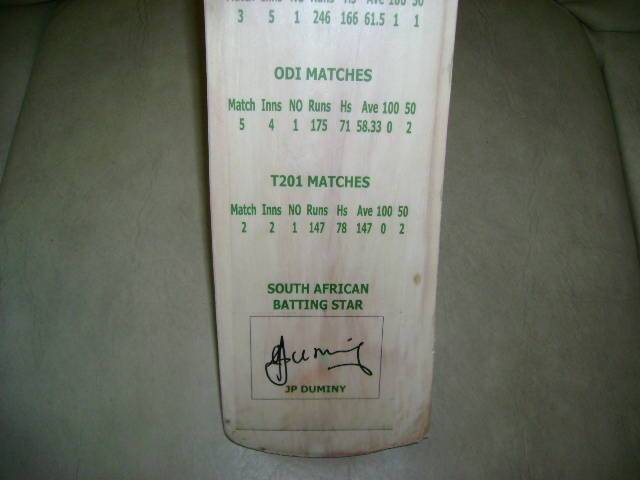 Match Inns NO Runs Hs Ave 100 50
3 5 1 246 166 61.5 1 1
ODI MATCHES
Match Inns NO Runs Hs Ave 100 50
5 4 1 175 71 58.33 0 2
T201 MATCHES
Match Inns NO Runs Hs Ave 100 50
2 2 1 147 78 147 0 2
SOUTH AFRICAN
BATTING STAR
JP Duminy
JP DUMINY